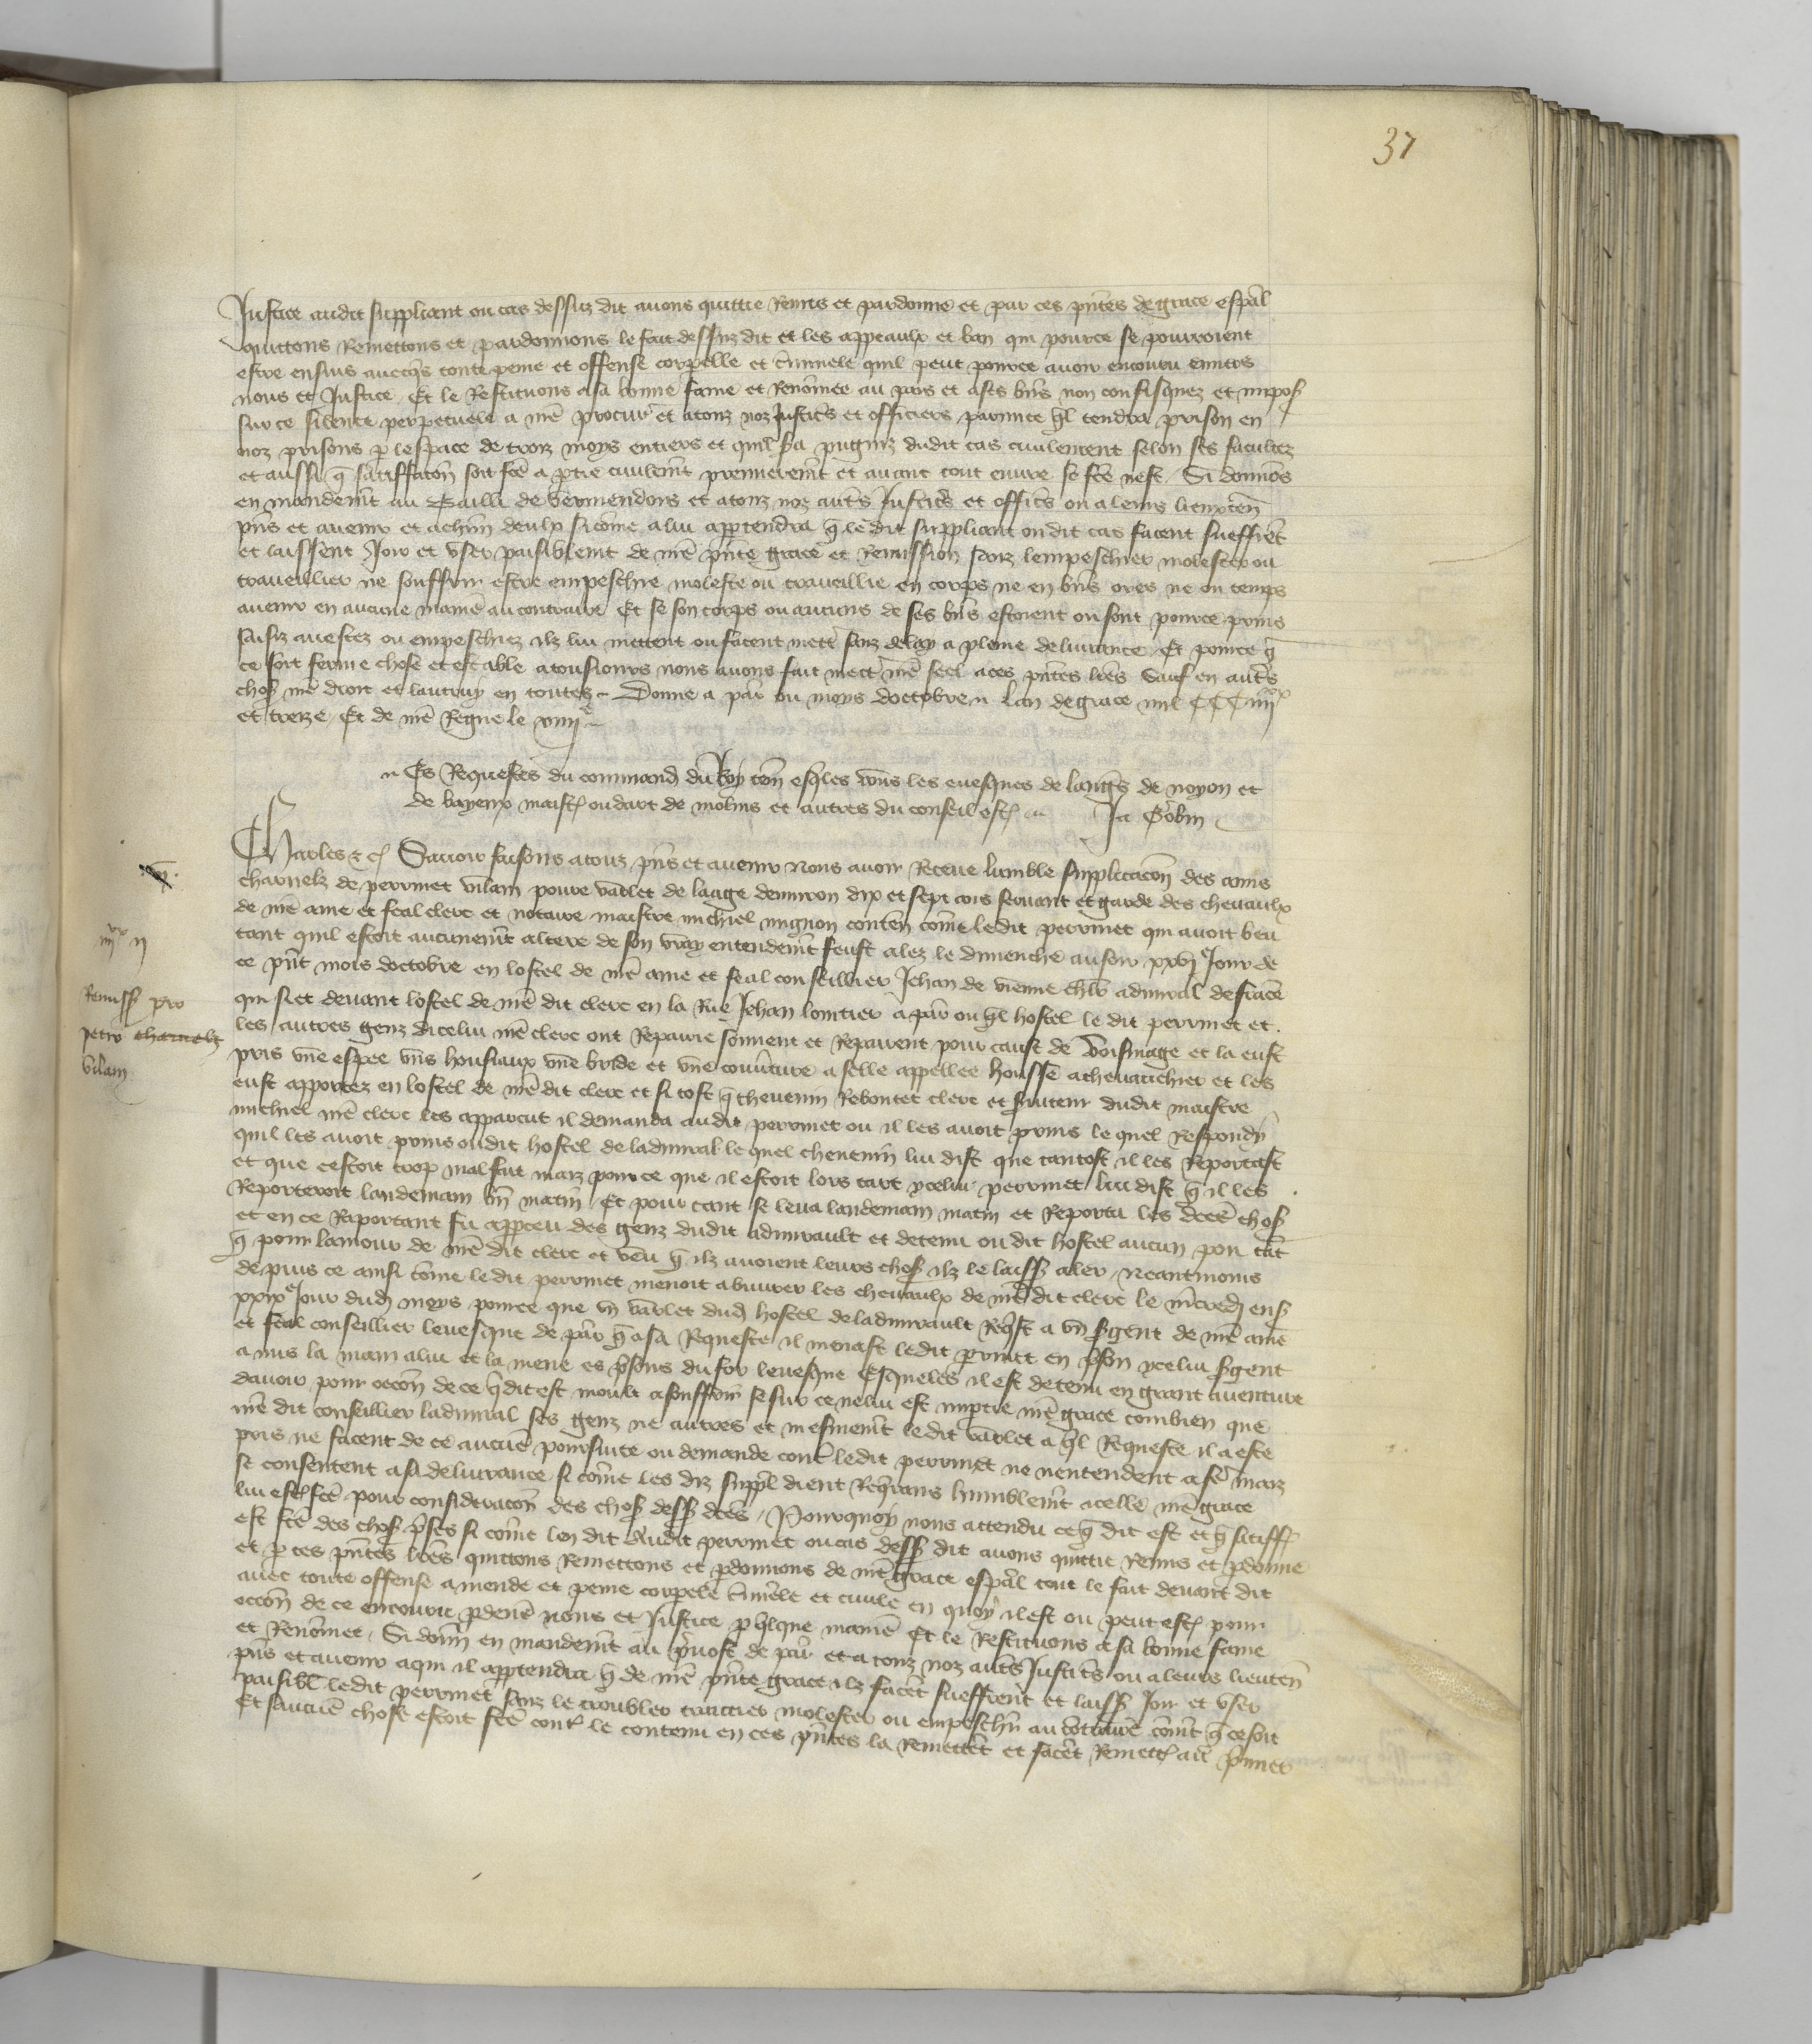 37
Justice audit suppliant ou cas dessusdit avons quittie remis et pardonne et par ces pntes de grace espal
quittons remettons et pardonnons le fait dessusdit et les appeaulx et ban qui pource se pourroient
estre ensuis avecqs toute peine et offense corpelle et criminele quil peut pource avoir encouru envers
nous et Justice Et le restituons a sa bonne fame et renomee au pais et a ses bns non confisquez et impos
sur ce silence perpetuele a nre procur et a touz noz justicrs et officiers parmi ce ql tendra prison en
noz prisons p lespace de trois moys entiers et quil sa pugniz dudit cas civilement selon ses facultez
et aussi q satiffacon soit fce a ptie civilemt premieremt et avant tout euvre se fce nest Si donnons
en mandemt au Bailli de Vermendois et a touz noz autrs Justicrs et officrs ou a leurs lieuxten
pns et avenir et a chun deulx si come a lui appartendra q le dit suppliant ou dit cas facent sueffret
et laissent Joir et user paisiblemt de nre pnte grace et remission sanz lempeschier molester ou
traveillier ne souffrir estre empeschie moleste ou traveillie en corps ne en bns ores ne ou temps
avenir en aucune maniere au contraire Et se son corps ou aucuns de ses bns estoient ou sont pource prins
saisiz arrestez ou empeschiez ilz lui mettent ou facent mettr sanz delay a pleine delivrance Et pource q
ce soit ferme chose et estable a tousiours nous avons fait mettr nre seel a ces pntes lres Sauf en autrs
chos nre droit et lautruy en toutes Donne a par ou moys doctobre lan de grace mil CCC iiiixx
et treize Et de nre Regne le xiiiie
Es Requestes du command du Roy ten esqles vous les evesques de langrs de noyon et
de bayeux maistr oudart de molins et autres du conseil estr Ja Gobin
Charles &c Savoir faisons a touz pns et avenir nous avoir receue lumble supplicacon des amis
charnelz de perrinet vilain povre varlet de laage denviron dix et sept ans servant et garde des chevaulx
de nre ame et feal clerc et notaire maistre michiel mignon conten come le dit perrinet qui avoit beu
tant quil estoit aucunemt altere de son vray entendemt feust alez le dimenche au soir xxvje Jour de
ce pnt mois doctobre en lostel de nre ame et feal conseillier Jehan de vienne chlr admiral de france
qui siet devant lostel de nre dit clerc en la Rue Jehan lointier a par ou ql hostel le dit perrinet et
les autres genz dicelui nre clerc ont repairie souvent et repairent pour cause de voisinage et la eust
pris une espee uns housiaux une bride et une couvture a selle appellee housse a chevauchier et les
eust apportez en lostel de nre dit clerc et si tost q thevenin Rebontet clerc et svuteur dudit maistre
michiel nre clerc les apparcut il demanda audit perrinet ou il les avoit prins le quel respondy
quil les avoit prins oudit hostel de ladmiral le quel thevenin lui dist que tantost il les reportast
et que cestoit trop mal fait maiz pour ce que il estoit lors tart ycelui perrinet lui dist q il les
reporteroit landemain bn matin Et pour tant se leva landemain matin et reporta les dces chos
et en ce raportant fu apperceu des genz dudit admirault et detenu ou dit hostel aucun pou tat
q pour lamour de nre dit clerc et veu q ilz avoient leurs chos ilz le laiss aler Neantmoins
depuis ce ainsi come le dit perrinet menoit abuvrer les chevaulx de nre dit clerc le mcred ens
xxixe Jour dud moys pource que un varlet dud hostel de ladmirault reqst a un sgent de nre ame
et feal conseillier levesque de par q a sa requeste il menast ledit prinet en pson ycelui sgent
a mis la main a lui et la mene es psons du for levesque Esqueles il est detenu en grant aventure
davoir pour occon de ce q dit est moult a souffrir se sur ce ne lui est impartie nre grace combien que
nre dit conseillier ladmiral ses genz ne autres et mesmemt le dit varlet a ql requeste il a este
pris ne facent de ce aucune poursuite ou demande contr ledit perrinet ne nentendent a fe maiz
se consentent a sa delivrance si come les diz suppl dient reqrans humblemt icelle nre grace
lui estr fce pour consideracon des chos dess dces Pourquoy nous attendu ce q dit est et q satiff
est fce des chos pses si come len dit Audit perrinet ou cas dess dit avons quittie remis et pdonne
et p ces pntes lres quittons remettons et pdonnons de nre grace espal tout le fait devant dit
avec toute offense amende et peine corpele criminele et civile en quoy il est ou peut estr pour
occon de ce encouru pdevers nous et Justice p qlque maniere Et le restituons a sa bonne fame
et renomee Si donn en mandemt au prevost de par et a touz noz autrs Justicrs ou a leurs lieuten
pns et avenir a qui il appartendra q de nre pnte grace ilz facent sueffrent et laiss Joir et user
paisibl ledit perrinet sanz le troubler traictier molester ou empeschier au contraire comt q ce soit
Et saucune chose estoit fce contr le contenu en ces pntes la remettent et facent remettr au pmier
iiiixx ij
Remiss pro
petro charnelz
vilain